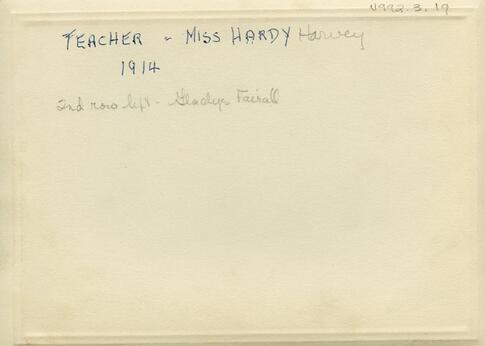 U992.3.19
TEACHER - MISS HARDY Harvey
1914
2nd row left - Gladys Fairall